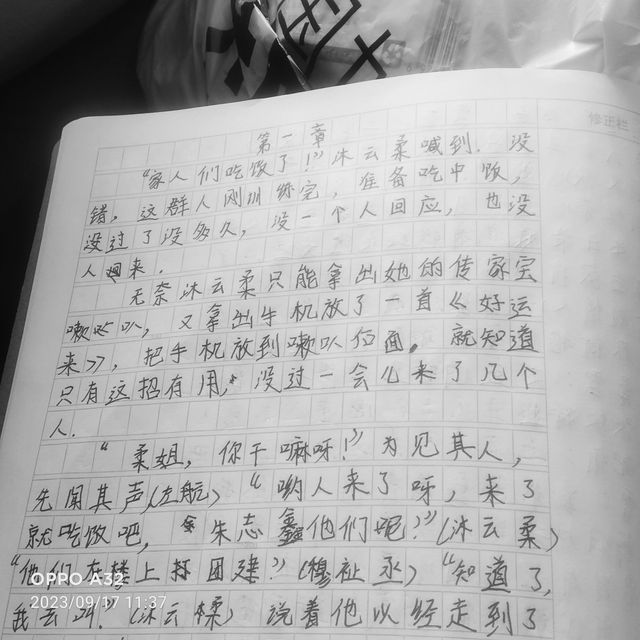 修正栏
第一章
“家人们吃饭了!”沐云柔喊到. 没
错, 这群人刚训练完, 准备吃中饭,
没过了没多久, 没一个人回应, 也没
人回来.
无奈沐云柔只能拿出她的传家宝
嗽叭, 又拿出手机放了一首《好运
来》, 把手机放到嗽叭后面。就知道
只有这招有用, 没过一会儿来了几个
人.
“柔姐, 你干嘛呀!”为见其人,
先闻其声(左航) “哟人来了呀, 来了
就吃饭吧, 朱志鑫他们呢?”(沐云柔)
“他们在楼上打团建”(穆祉丞) “知道了,
我去叫”(沐云柔) 说着他以经走到了
OPPO A32
2023/09/17 11:37